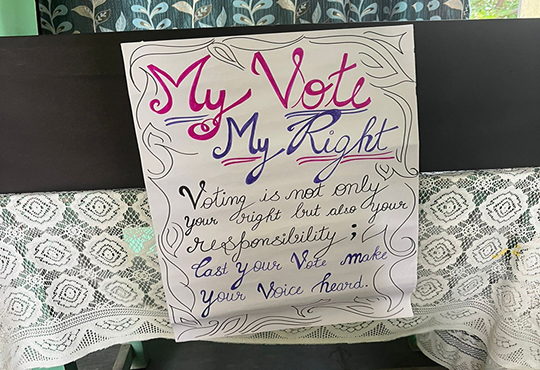 My Vote
My Right
Voting is not only
your right but also your
responsibility ;
Cast your Vote make
your Voice heard.